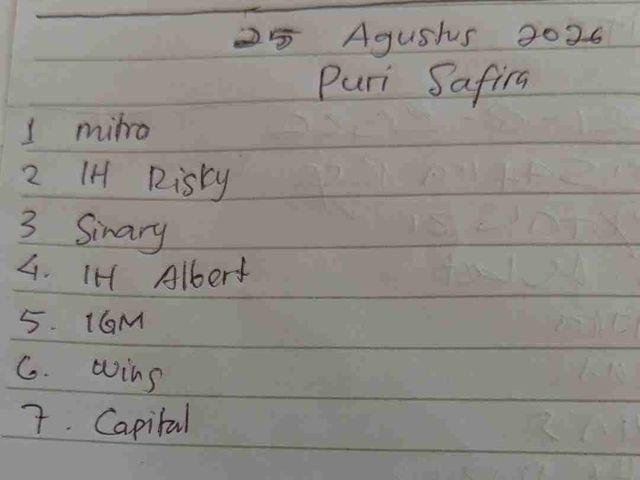 25 Agustus 2026
Puri Safira
1 mitro
2 IH Risky
3 Sinary
4. IH Albert
5. IGM
6. Wins
7. Capital